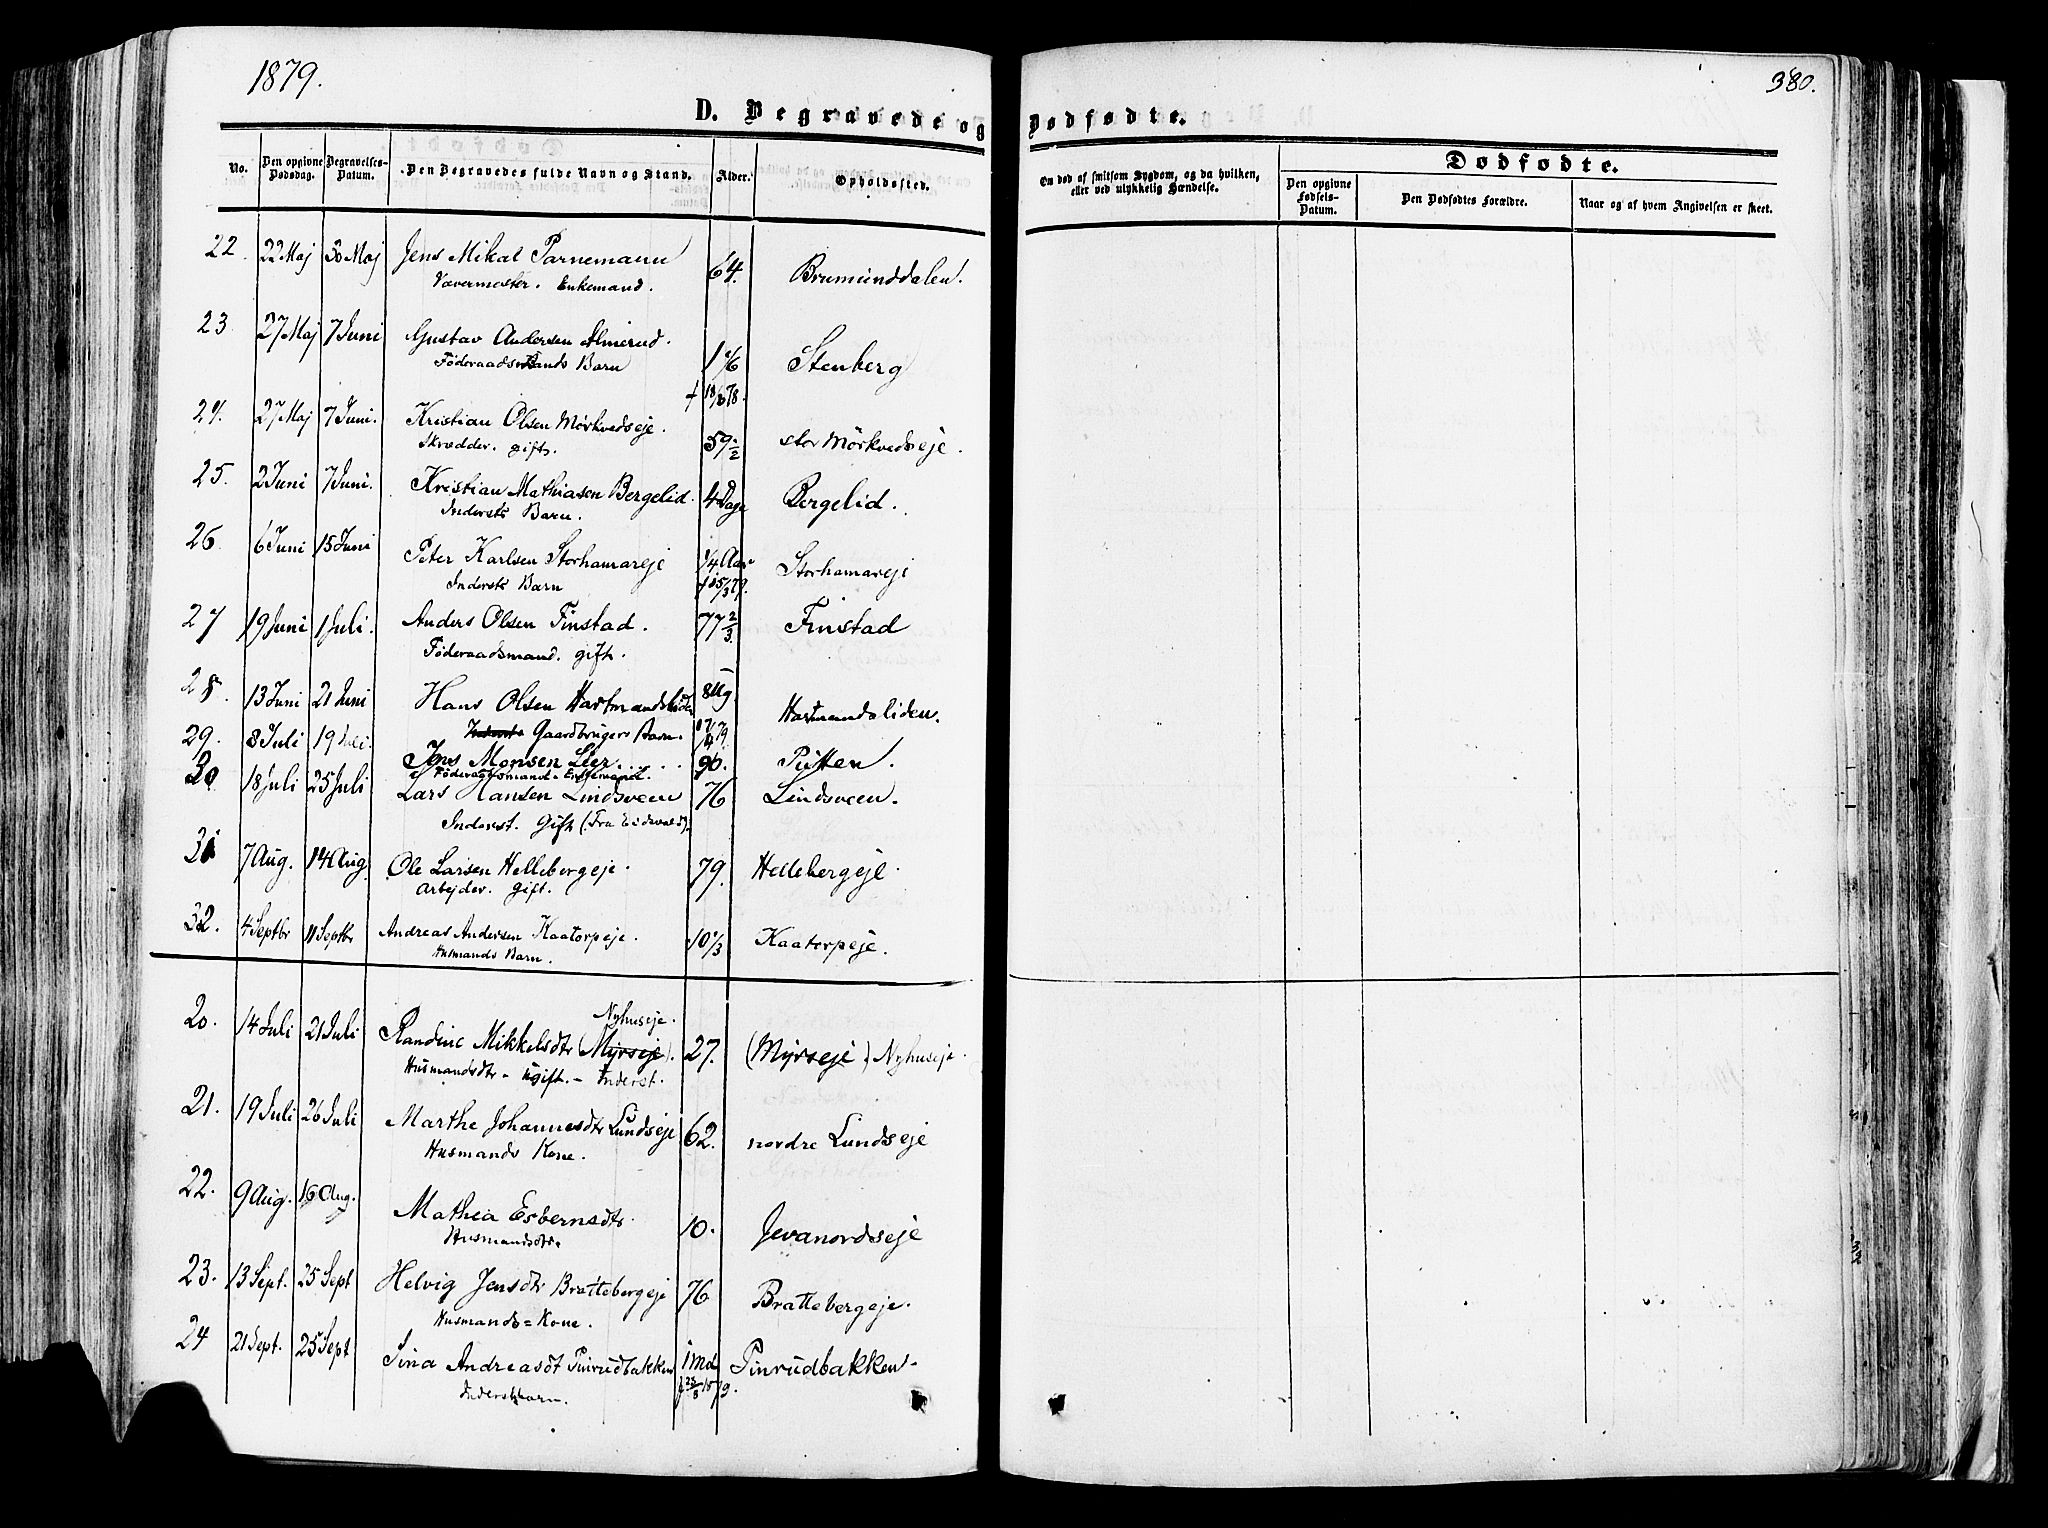 1879.
380.
D. Begravede og Dødfødte.
No.
Den opgivne Dødsdag.
Begravelses-Datum.
Den Begravedes fulde Navn og Stand.
Alder.
Opholdssted.
Om død af smitsom Sygdom, og da hvilken, eller ved ulykkelig Hændelse.
Dødfødte.
Den opgivne Fødsels-Datum.
Den Dødfødtes Forældre.
Naar og af hvem Angivelsen er skeet.
22. 22 Maj 30 Maj Jens Mikal Parnemann 64. Brumunddalen.
Vævermester. Enkemand.
23. 27 Maj 7 Juni Gustav Andersen Almerud. 1 1/6 Stenberg
Føderaadsmands Barn
f 18/3 78.
24. 27 Maj 7 Juni. Kristian Olsen Mørkvedseje. 59 1/2 stor Mørkvedseje.
Skrædder. gift.
25. 2 Juni 7 Juni. Kristian Mathiasen Bergelid. 4 Dage Bergelid.
Indersts Barn.
26 6 Juni 15 Juni Peter Karlsen Storhamareje 1/4 Aar Storhamareje
Indersts Barn f 15/3 79.
27 19 Juni 1 Juli. Anders Olsen Finstad. 77 2/3 Finstad
Føderaadsmand. gift.
28. 13 Juni 21 Juni Hans Olsen Hartmandsliden 8 Ug. Hartmandsliden.
Inderst Gaardbrugers Barn. 17/4 79.
29. 8 Juli 19 Juli. Jens Monsen Lier..... 90. Putten.
Føderaadsmand. Enkemand.
30 18 Juli 25 Juli Lars Hansen Lindsveen 76 Lindsveen.
Inderst. Gift (Fra Eidsvold).
31 7 Aug. 14 Aug Ole Larsen Hellebergeje. 79. Hellebergeje.
Arbejder. gift.
32. 4 Septbr 11 Septbr Andreas Andersen Kaatorpeje. 10 1/3 Kaatorpeje.
Husmands Barn.
Nyhuseje.
20. 14 Juli 21 Juli Randine Mikkelsdtr (Myrseje). 27. (Myrseje) Nyhuseje.
Husmandsdtr - Ugift. - Inderst.
21. 19 Juli 26 Juli Marthe Johannesdtr Lundseje 62. nordre Lundseje
Husmands Kone.
22. 9 Aug. 16 Aug. Mathea Esbernsdtr. 10. Jevanordseje
Husmandsdtr.
23. 13 Sept. 25 Sept Helvig Jensdtr Brattebergeje 76 Brattebergeje.
Husmands = Kone.
24 21 Sept. 25 Sept Sina Andreasdt Pinrudbakken 1 Md Pinrudbakken
Inderstbarn. f 23/8 1879.